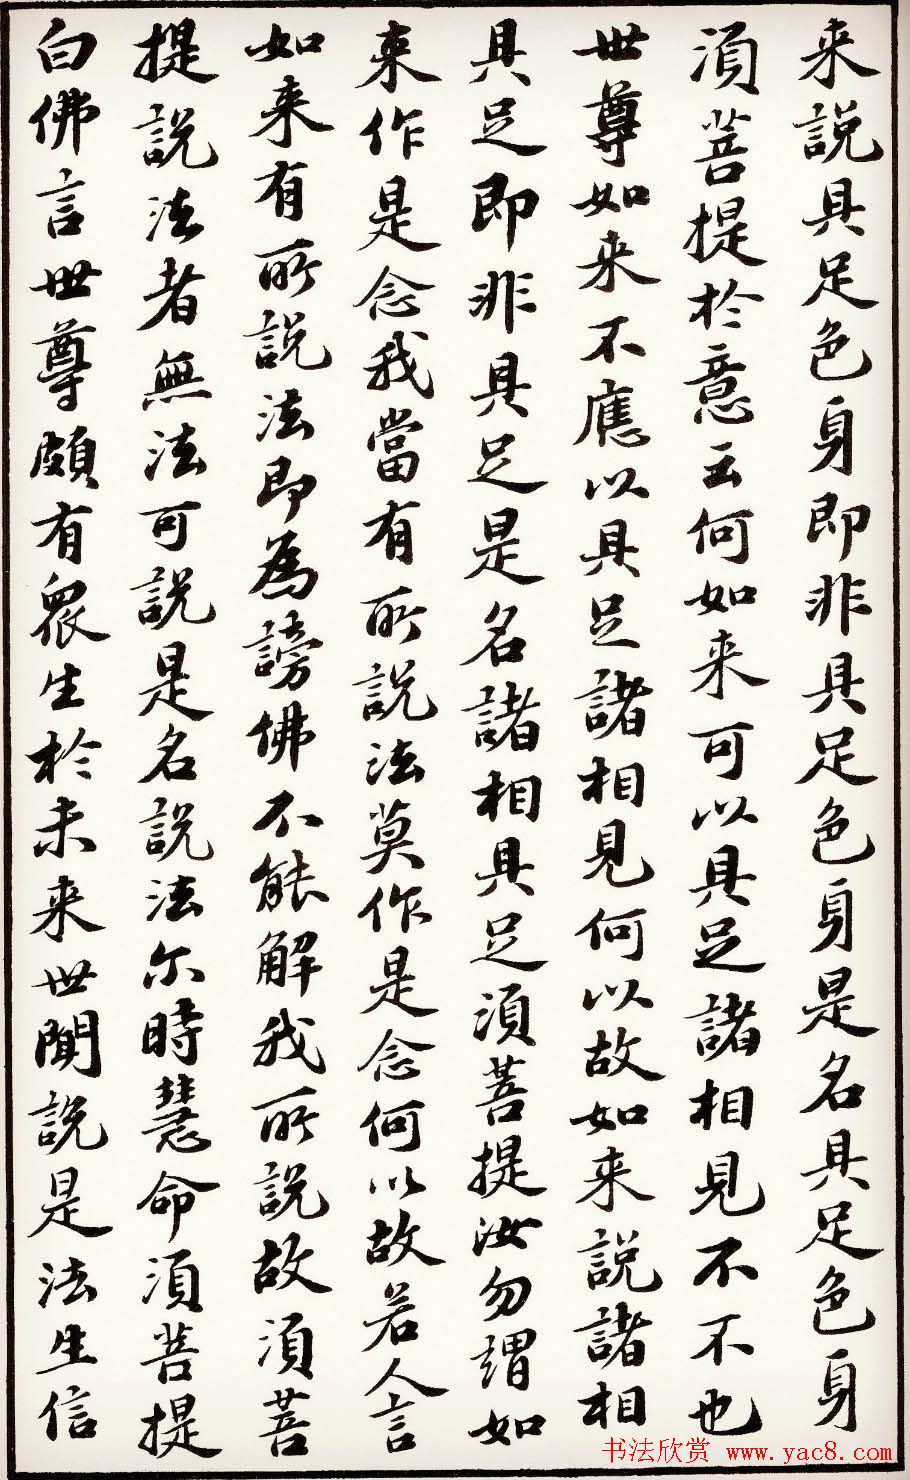 来說具足色身即非具足色身是名具足色身
須菩提於意云何如来可以具足諸相見不不也
世尊如来不應以具足諸相見何以故如来說諸相
具足即非具足是名諸相具足須菩提汝勿謂如
来作是念我當有所說法莫作是念何以故若人言
如来有所說法即為謗佛不能解我所說故須菩
提說法者無法可說是名說法尔時慧命須菩提
白佛言世尊頗有衆生於未来世聞說是法生信
书法欣赏 www.yac8.com